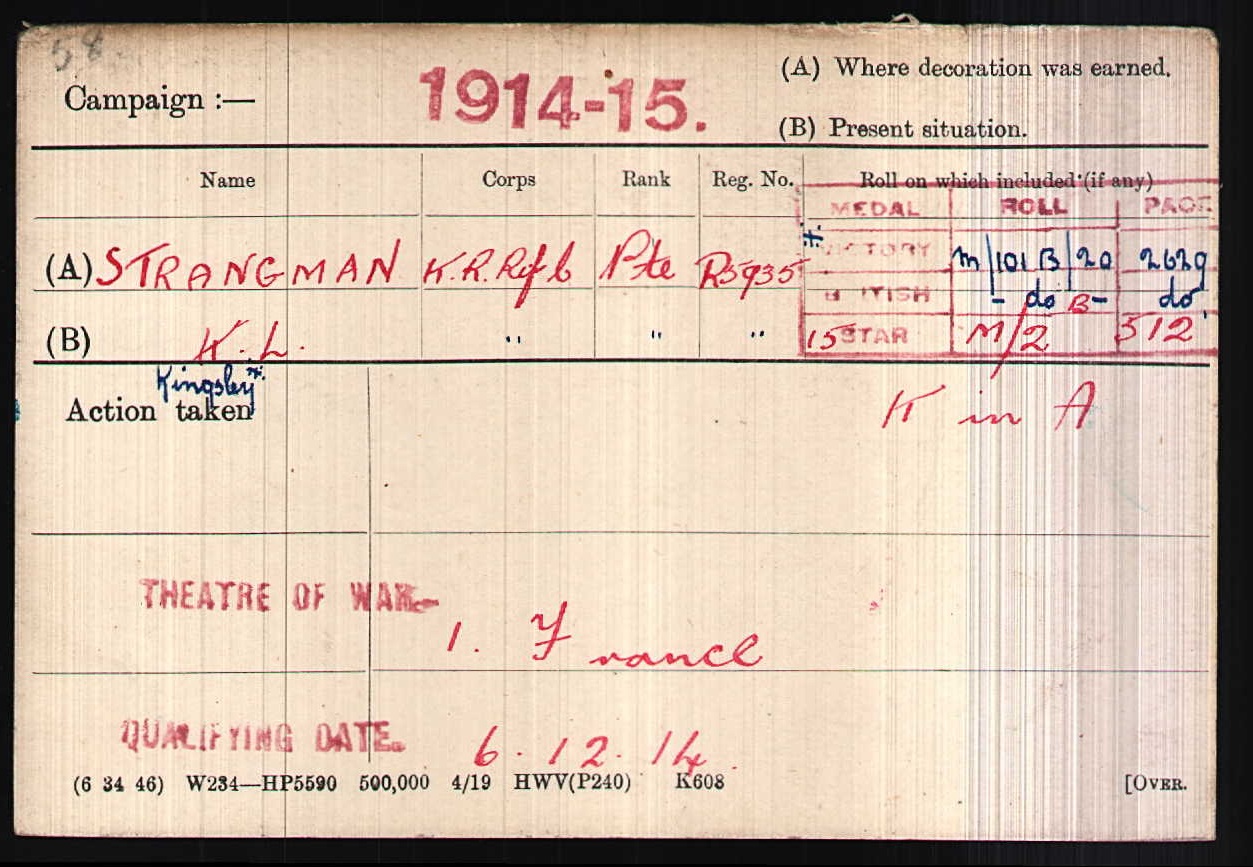 58
Campaign :— 1914-15. (A) Where decoration was earned.
(B) Present situation.
Name Corps Rank Reg. No. Roll on which included (if any)
MEDAL ROLL PAGE
(A) STRANGMAN K.R.Rif C Pte R5935 VICTORY M/101 B/20 2629
BRITISH - do B - do
(B) K. L. " " " 15 STAR M/2 512
Kingsley
Action taken K in A
THEATRE OF WAR.
1. France
QUALIFYING DATE. 6.12.14.
(6 34 46) W234—HP5590 500,000 4/19 HWV(P240) K608 [OVER.